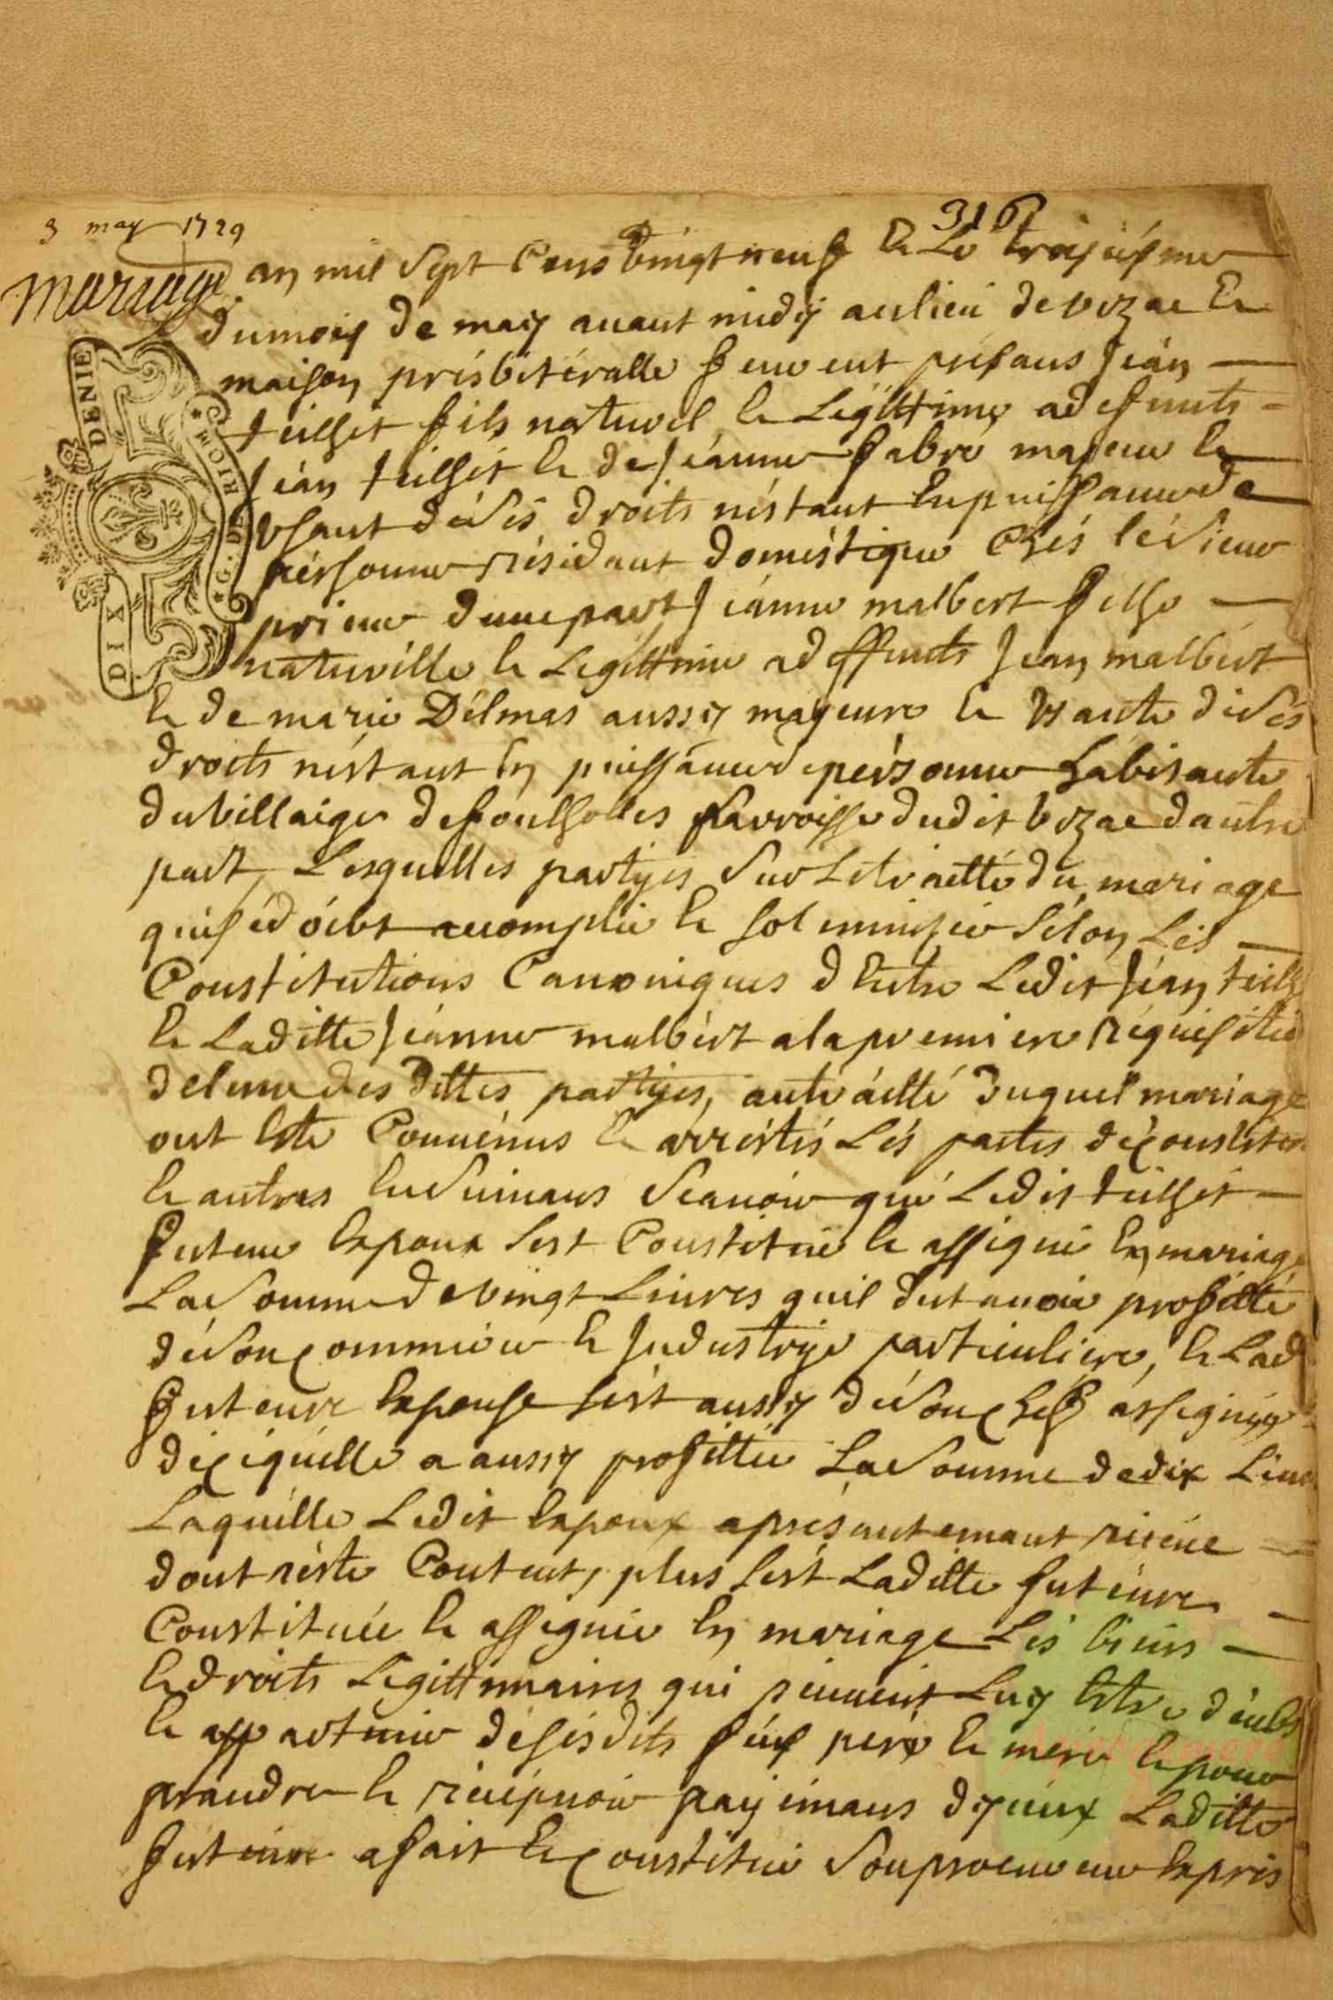 3 may 1729
316
mariage
an mil sept cens vingt neuf & le troisiesme
du mois de may avant midy au lieu de vozac &
maison présbitéralle feurent présans Jéan
teilhet fils naturel & Legittime a deffunts
Jéan teilhet & de Jéanne fabre majeur &
usant de ses droits n'estant en puissance de
pérsonne résidant doméstique chés le sieur
prieur d'une part Jéanne malbert filhe
naturélle & Legittime a deffunts Jean malbért
& de marie Délmas aussy mayeure & usante de ses
droits n'éstant en puissance de pérsonne habitante
du villaige de foulholles parroisse dudit vozac d'autre
part, Lesquelles partyes sur Le traitté du mariage
qui se doibt acomplir & solemniser sélon Lés
Constitutions Canoniques d'Entre Ledit Jéan teilh
& Laditte Jéanne malbért a la premiere réquisitio
de lune des dittes partyes, au traitté duquel mariage
ont esté Convénus & arréstés Lés pactes découstitu
& autres ensuivans scavoir que Ledit teilhét
futeur Espoux s'est Constitué & assigné en mariage
La somme de vingt Livres quil dit avoir profitté
de son commerce & Industrye particuliere, & Lad
futeure Espouse s'ést aussy de son chéf assignée
de ce quélle a aussy profitté La somme de dix Livr
Laquélle Ledit Espoux a présantemant réceue
dont réste Contant, plus s'ést Laditte futéure
Constituée & assignée en mariage Lés biens
& droits Légittimaires qui peuvent Luy Estre déubs
& appartenir de sesdits feus pere & mere & pour
prandre & récépvoir payemans d'yceux Laditte
futeure a fait & constitué son procureur Exprés
DIX
DENIE
G. DE RIOM